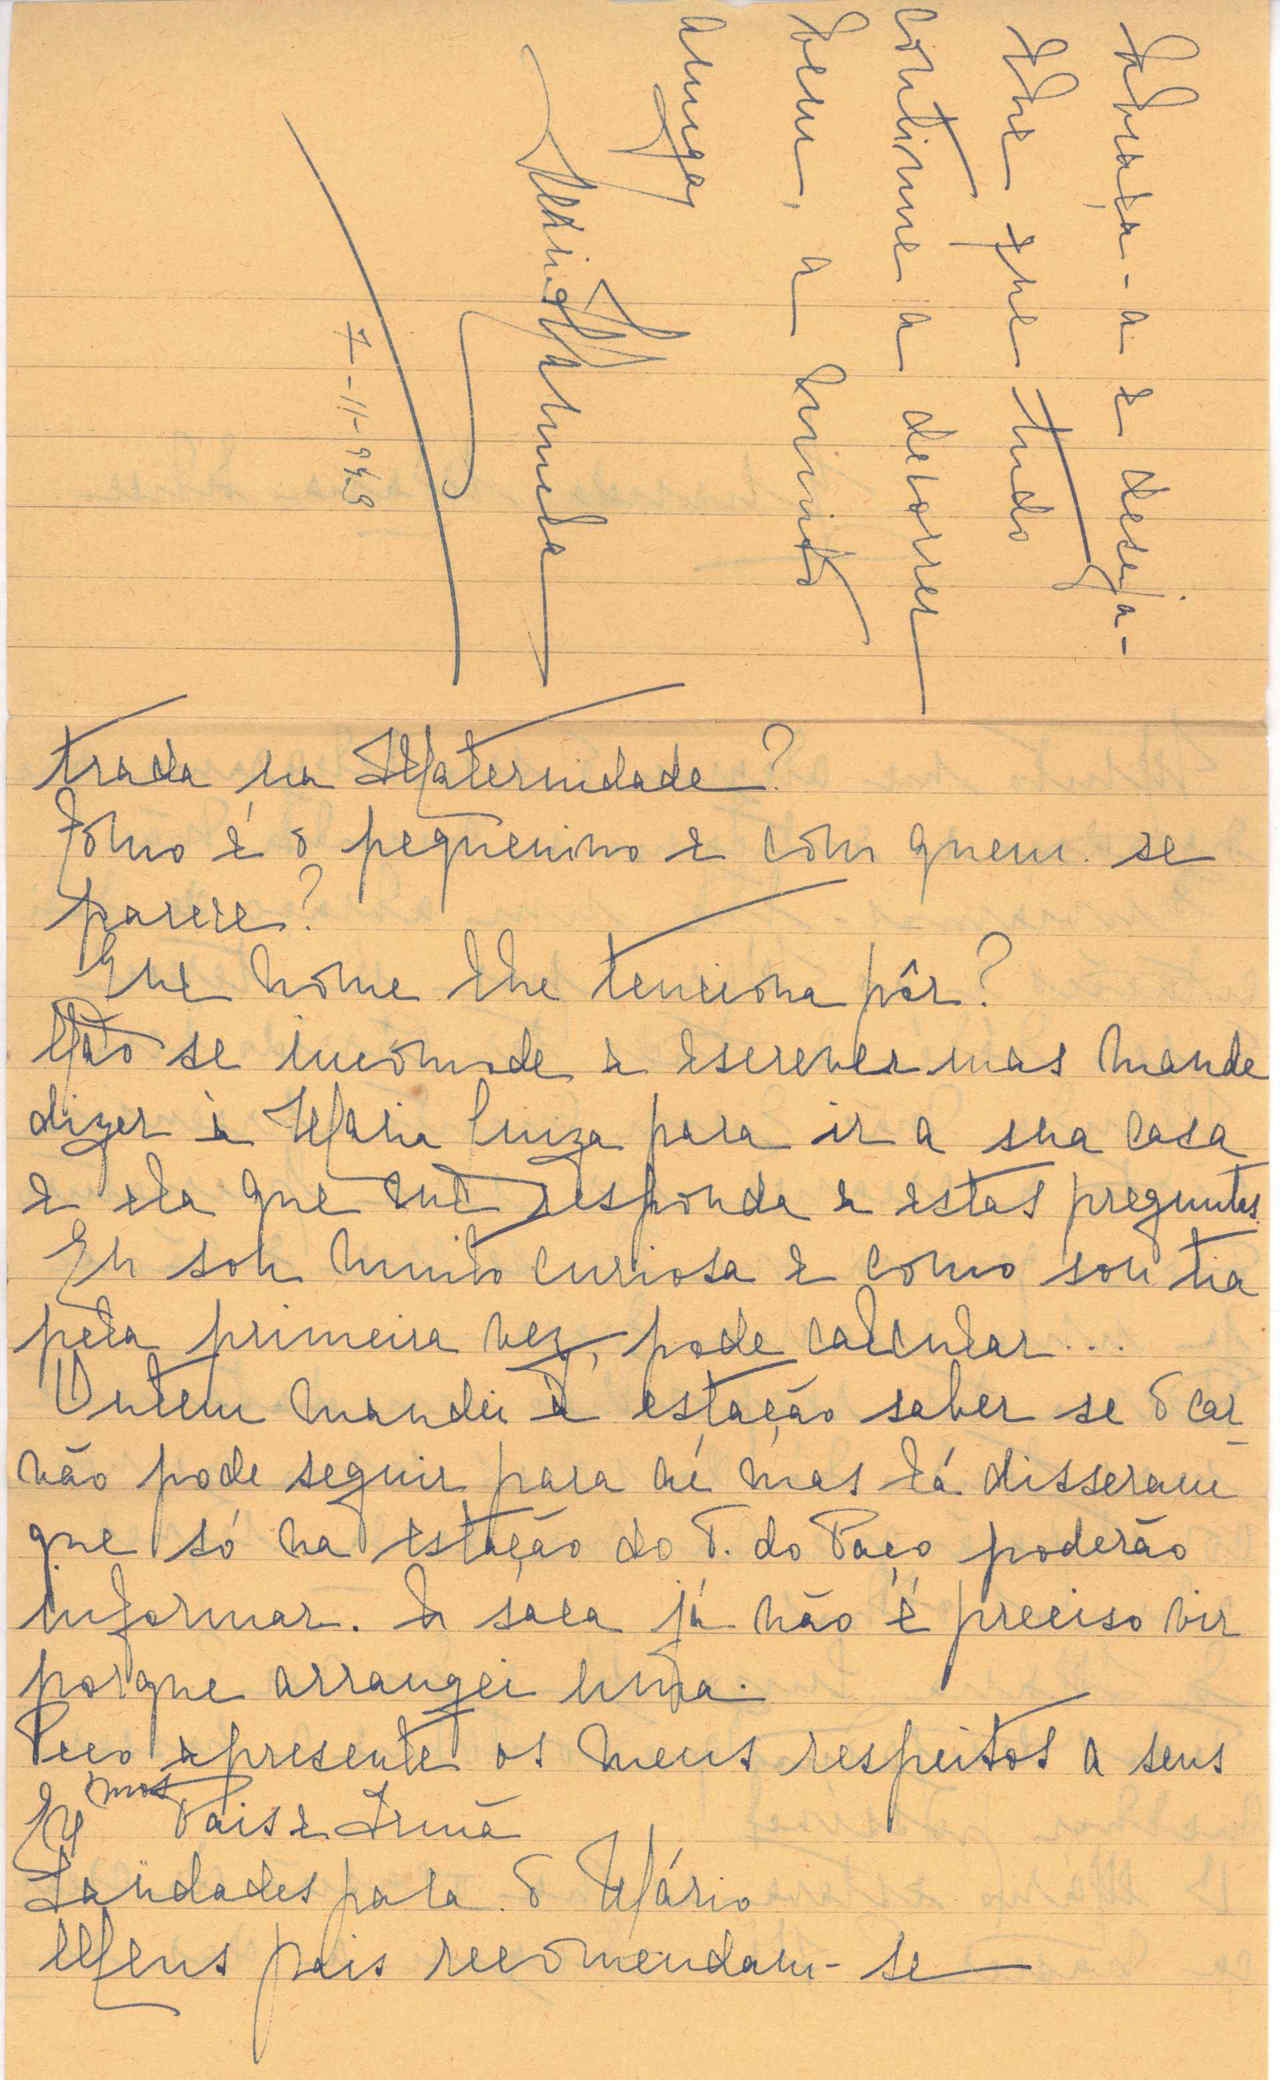 trada na Maternidade?
Como é o pequenino e com quem se
parece?
Que nome lhe tenciona pôr?
Não se incomode a escrever mas mande
dizer à Maria Luiza para ir a sua casa
e ela que me responda a estas preguntas.
Eu sou muito curiosa e como sou tia
pela primeira vez, pode calcular...
Ontem mandei à estação saber se o car
vão pode seguir para aí mas lá disseram
que só na estação do T. do Paço poderão
informar. A saca já não é preciso vir
porque arrangei uma.
Peço apresente os meus respeitos a seus
Exmos Pais e Irmã
Saüdades para o Mário
Meus pais recomendam-se
Abraça-a e deseja-
lhe que tudo
continue a decorrer
bem, a muito
amiga
7-11-949